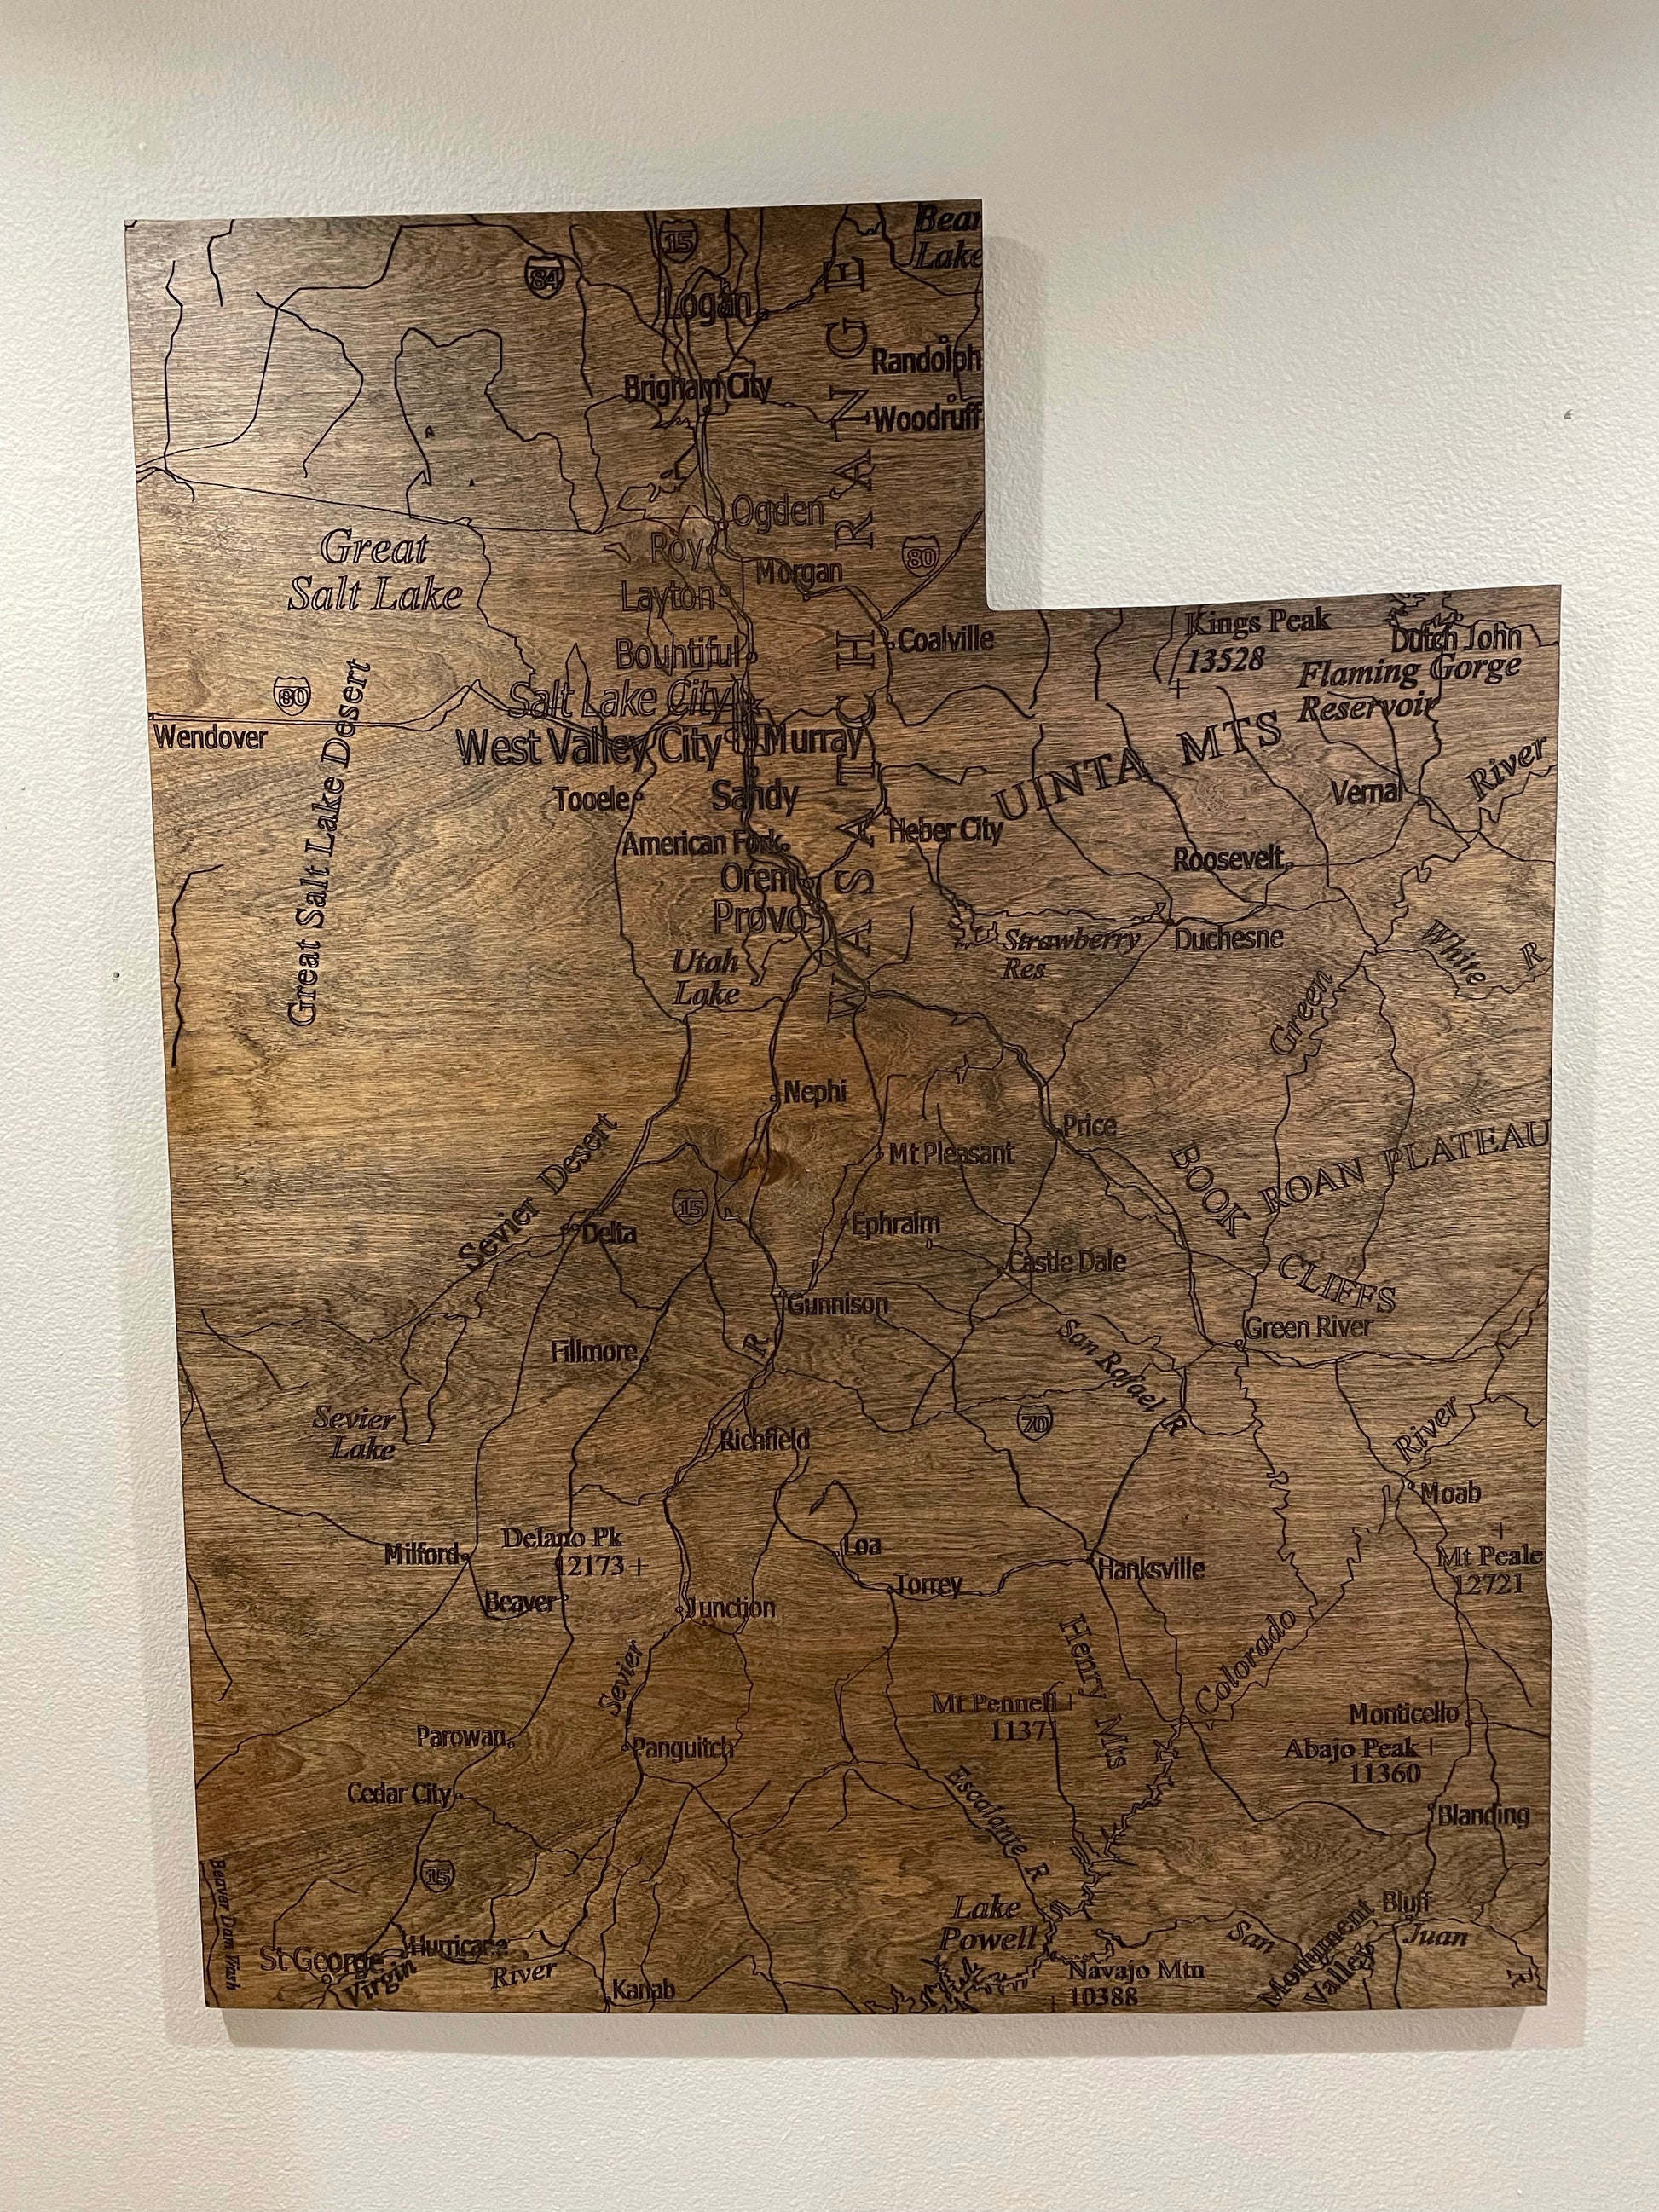 Bear
Lake
15
84
Logan
Randolph
Brigham City
Woodruff
WASATCH RANGE
Ogden
Great
Salt Lake
Roy
Morgan
80
Layton
Kings Peak
13528
Dutch John
Coalville
Bountiful
Flaming Gorge
Reservoir
80
Salt Lake City
Wendover
West Valley City
Murray
UINTA MTS
River
Great Salt Lake Desert
Tooele
Sandy
Vernal
American Fork
Heber City
Roosevelt
Orem
Provo
Strawberry
Res
Duchesne
White R
Utah
Lake
Green
Nephi
Price
Mt Pleasant
BOOK
CLIFFS
ROAN PLATEAU
Sevier Desert
15
Delta
Ephraim
Castle Dale
Gunnison
Green River
R
Fillmore
San Rafael R
Sevier
Lake
70
River
Richfield
Moab
Milford
Delano Pk
12173
Loa
Hanksville
Mt Peale
12721
Torrey
Beaver
Junction
Henry Mts
Colorado
Sevier
Mt Pennell
11371
Monticello
Parowan
Panguitch
Abajo Peak
11360
Cedar City
Escalante R
Blanding
15
Beaver Dam Wash
Lake
Powell
Bluff
San
Juan
Monument
Valley
Hurricane
St George
Virgin
River
Navajo Mtn
10388
Kanab
R